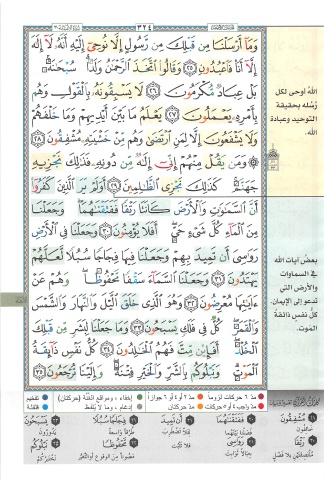 ٣٢٤
وَمَآ أَرْسَلْنَا مِن قَبْلِكَ مِن رَّسُولٍ إِلَّا نُوحِىٓ إِلَيْهِ أَنَّهُۥ لَآ إِلَٰهَ
إِلَّآ أَنَا۠ فَٱعْبُدُونِ ٢٥ وَقَالُوا۟ ٱتَّخَذَ ٱلرَّحْمَٰنُ وَلَدًا ۗ سُبْحَٰنَهُۥ ۚ
بَلْ عِبَادٌ مُّكْرَمُونَ ٢٦ لَا يَسْبِقُونَهُۥ بِٱلْقَوْلِ وَهُم
بِأَمْرِهِۦ يَعْمَلُونَ ٢٧ يَعْلَمُ مَا بَيْنَ أَيْدِيهِمْ وَمَا خَلْفَهُمْ
وَلَا يَشْفَعُونَ إِلَّا لِمَنِ ٱرْتَضَىٰ وَهُم مِّنْ خَشْيَتِهِۦ مُشْفِقُونَ ٢٨
۞ وَمَن يَقُلْ مِنْهُمْ إِنِّىٓ إِلَٰهٌ مِّن دُونِهِۦ فَذَٰلِكَ نَجْزِيهِ
جَهَنَّمَ ۚ كَذَٰلِكَ نَجْزِى ٱلظَّٰلِمِينَ ٢٩ أَوَلَمْ يَرَ ٱلَّذِينَ كَفَرُوٓا۟
أَنَّ ٱلسَّمَٰوَٰتِ وَٱلْأَرْضَ كَانَتَا رَتْقًا فَفَتَقْنَٰهُمَا ۖ وَجَعَلْنَا
مِنَ ٱلْمَآءِ كُلَّ شَىْءٍ حَىٍّ ۖ أَفَلَا يُؤْمِنُونَ ٣٠ وَجَعَلْنَا فِى ٱلْأَرْضِ
رَوَٰسِىَ أَن تَمِيدَ بِهِمْ وَجَعَلْنَا فِيهَا فِجَاجًا سُبُلًا لَّعَلَّهُمْ
يَهْتَدُونَ ٣١ وَجَعَلْنَا ٱلسَّمَآءَ سَقْفًا مَّحْفُوظًا ۖ وَهُمْ عَنْ
ءَايَٰتِهَا مُعْرِضُونَ ٣٢ وَهُوَ ٱلَّذِى خَلَقَ ٱلَّيْلَ وَٱلنَّهَارَ وَٱلشَّمْسَ
وَٱلْقَمَرَ ۖ كُلٌّ فِى فَلَكٍ يَسْبَحُونَ ٣٣ وَمَا جَعَلْنَا لِبَشَرٍ مِّن قَبْلِكَ
ٱلْخُلْدَ ۖ أَفَإِي۟ن مِّتَّ فَهُمُ ٱلْخَٰلِدُونَ ٣٤ كُلُّ نَفْسٍ ذَآئِقَةُ
ٱلْمَوْتِ ۗ وَنَبْلُوكُم بِٱلشَّرِّ وَٱلْخَيْرِ فِتْنَةً ۖ وَإِلَيْنَا تُرْجَعُونَ ٣٥
اللهُ أوحى لكل
رُسُله بحقيقة
التوحيد وعبادة
الله.
بعضُ آيات الله
في السماوات
والأرض التي
تدعو إلى الإيمان.
كلّ نفسٍ ذائقةُ
الموت.
مدّ ٦ حركات لزوماً مدّ ٢ أو ٤ أو ٦ جوازاً إخفاء، ومواقع الغُنَّة (حركتان) تفخيم
مدّ واجب ٤ أو ٥ حركات مدّ حركتان إدغام، وما لا يُلفظ قلقلة
مُشْفِقُونَ فَفَتَقْنَاهُمَا أَن تَمِيدَ فِجَاجًا سُبُلًا يَسْبَحُونَ
رَتْقًا مَحْفُوظًا نَبْلُوكُم